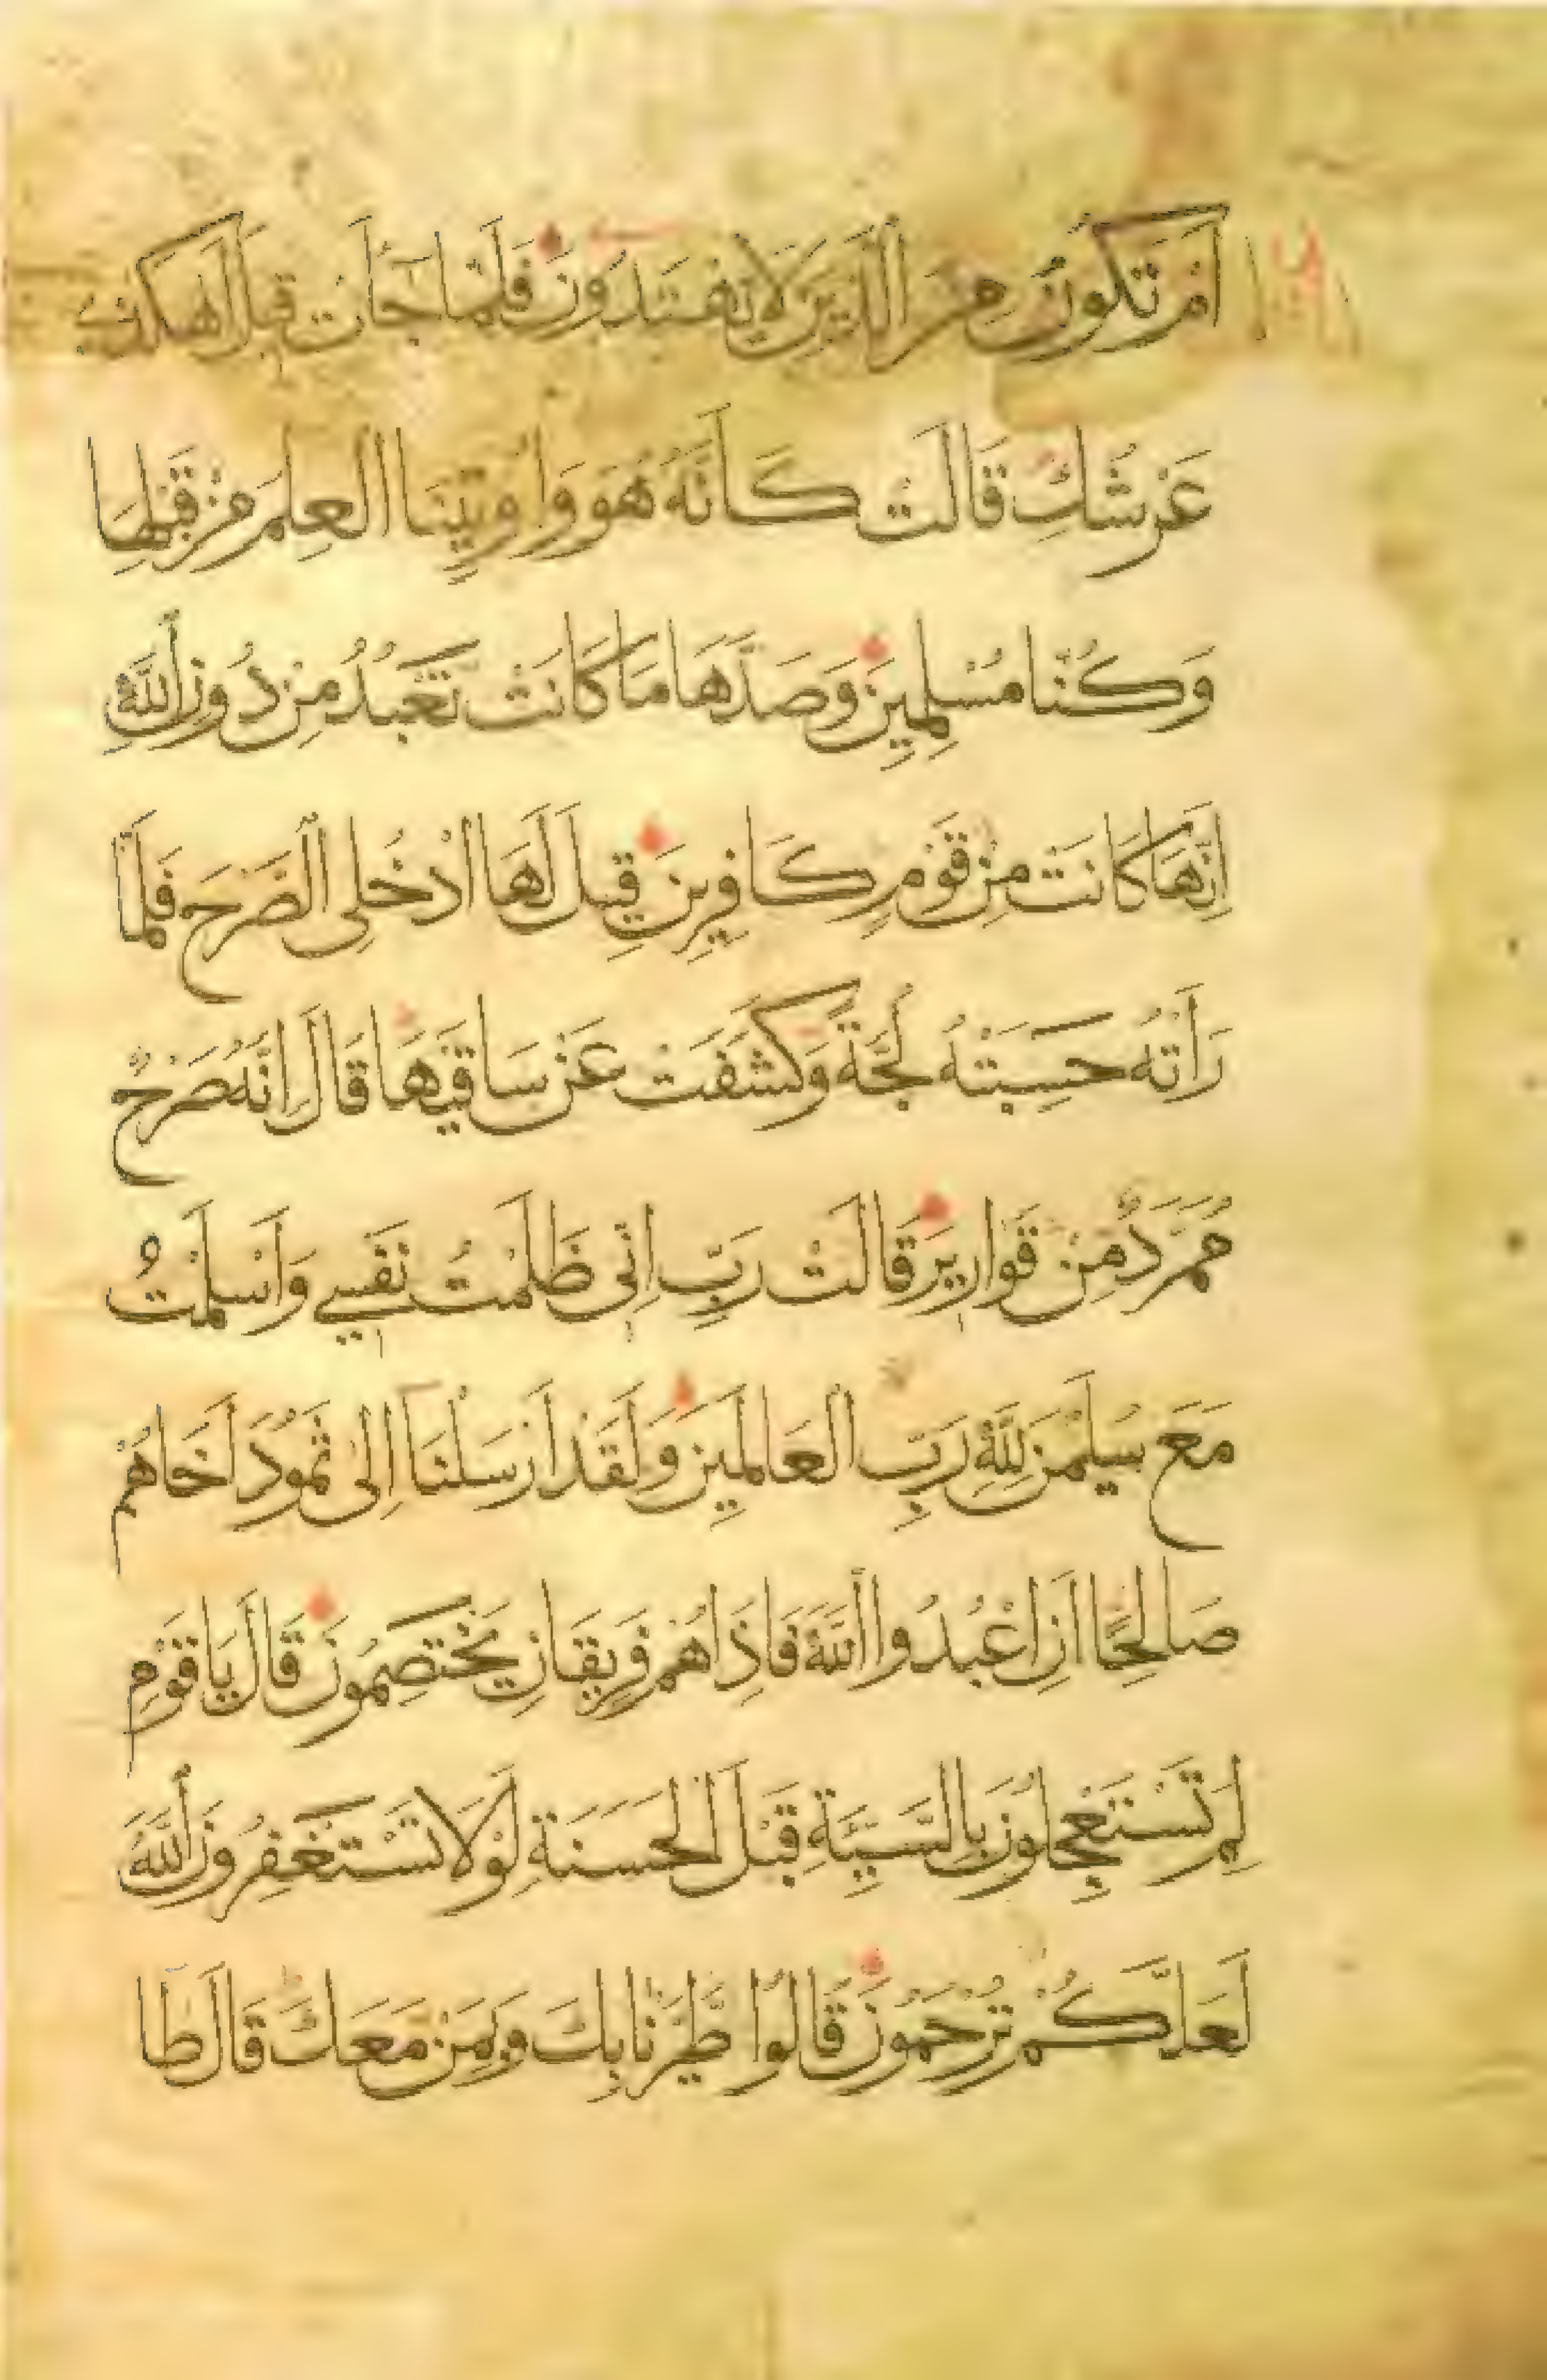 اَمْ تَكُونُ مِنَ الَّذِينَ لَا يَهْتَدُونَ فَلَمَّا جَآءَتْ قِيلَ أَهَكَذَا
عَرْشُكِ قَالَتْ كَاَنَّهُ هُوَ وَاُوتِينَا العِلْمَ مِنْ قَبْلِهَا
وَكُنَّا مُسْلِمِينَ وَصَدَّهَا مَا كَانَتْ تَعْبُدُ مِنْ دُونِ اللَّهِ
اِنَّهَا كَانَتْ مِنْ قَوْمٍ كَافِرِينَ قِيلَ لَهَا ادْخُلِى الصَّرْحَ فَلَمَّا
رَأَتْهُ حَسِبَتْهُ لُجَّةً وَكَشَفَتْ عَنْ سَاقَيْهَا قَالَ اِنَّهُ صَرْحٌ
مُمَرَّدٌ مِنْ قَوَارِيرَ قَالَتْ رَبِّ اِنِّى ظَلَمْتُ نَفْسِي وَاَسْلَمْتُ
مَعَ سُلَيْمٰنَ لِلَّهِ رَبِّ العَالَمِينَ وَلَقَدْ اَرْسَلْنَا اِلٰى ثَمُودَ اَخَاهُمْ
صَالِحًا اَنِ اعْبُدُوا اللَّهَ فَاِذَا هُمْ فَرِيقَانِ يَخْتَصِمُونَ قَالَ يَا قَوْمِ
لِمَ تَسْتَعْجِلُونَ بِالسَّيِّئَةِ قَبْلَ الْحَسَنَةِ لَوْلَا تَسْتَغْفِرُونَ اللَّهَ
لَعَلَّكُمْ تُرْحَمُونَ قَالُوا اطَّيَّرْنَا بِكَ وَبِمَنْ مَعَكَ قَالَ طَا